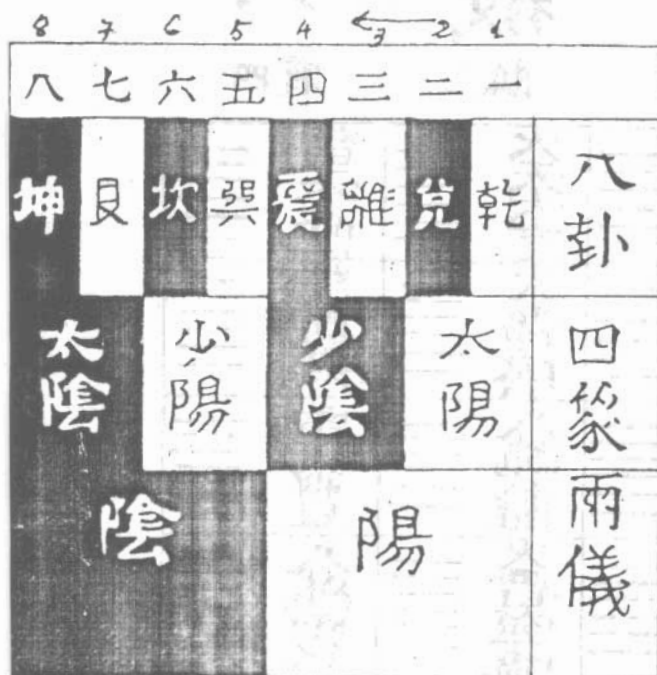 8 7 6 5 4 3 2 1
八 七 六 五 四 三 二 一
坤 艮 坎 巽 震 離 兌 乾 八卦
太陰 少陽 少陰 太陽 四象
陰 陽 兩儀